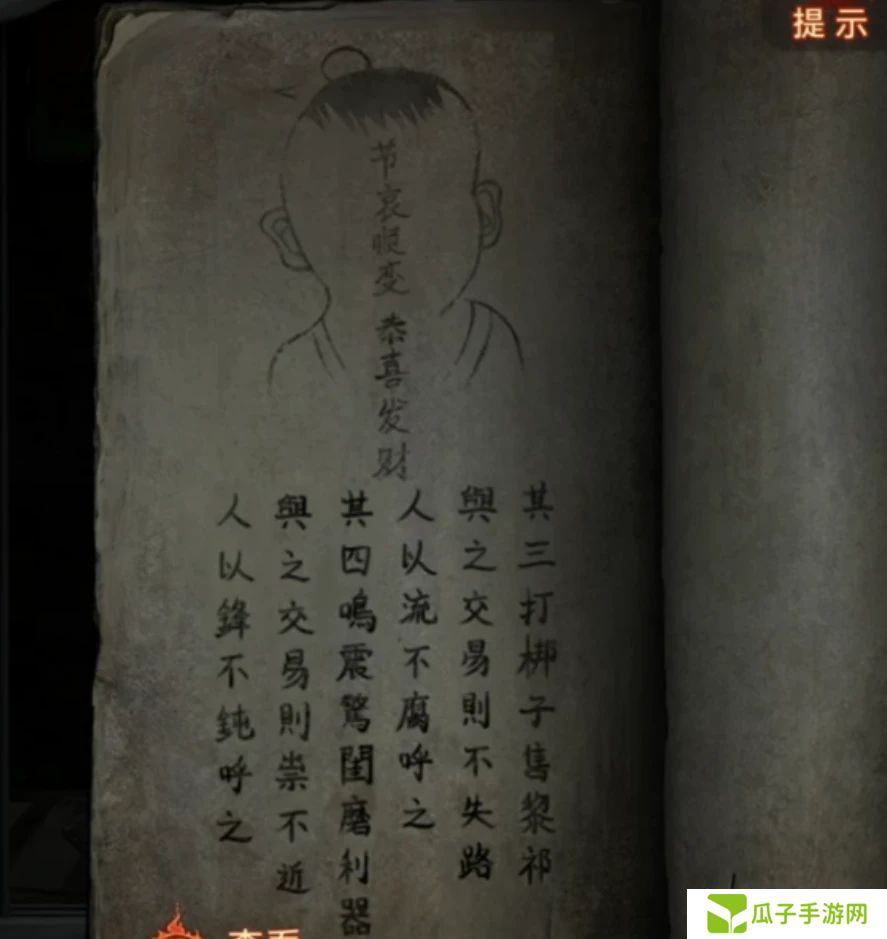 提示
节哀顺变 恭喜发财
其三打梆子售黎祁
與之交易則不失路
人以流不腐呼之
其四鳴震驚閨磨利器
與之交易則祟不近
人以鋒不鈍呼之
查看
瓜子手游网